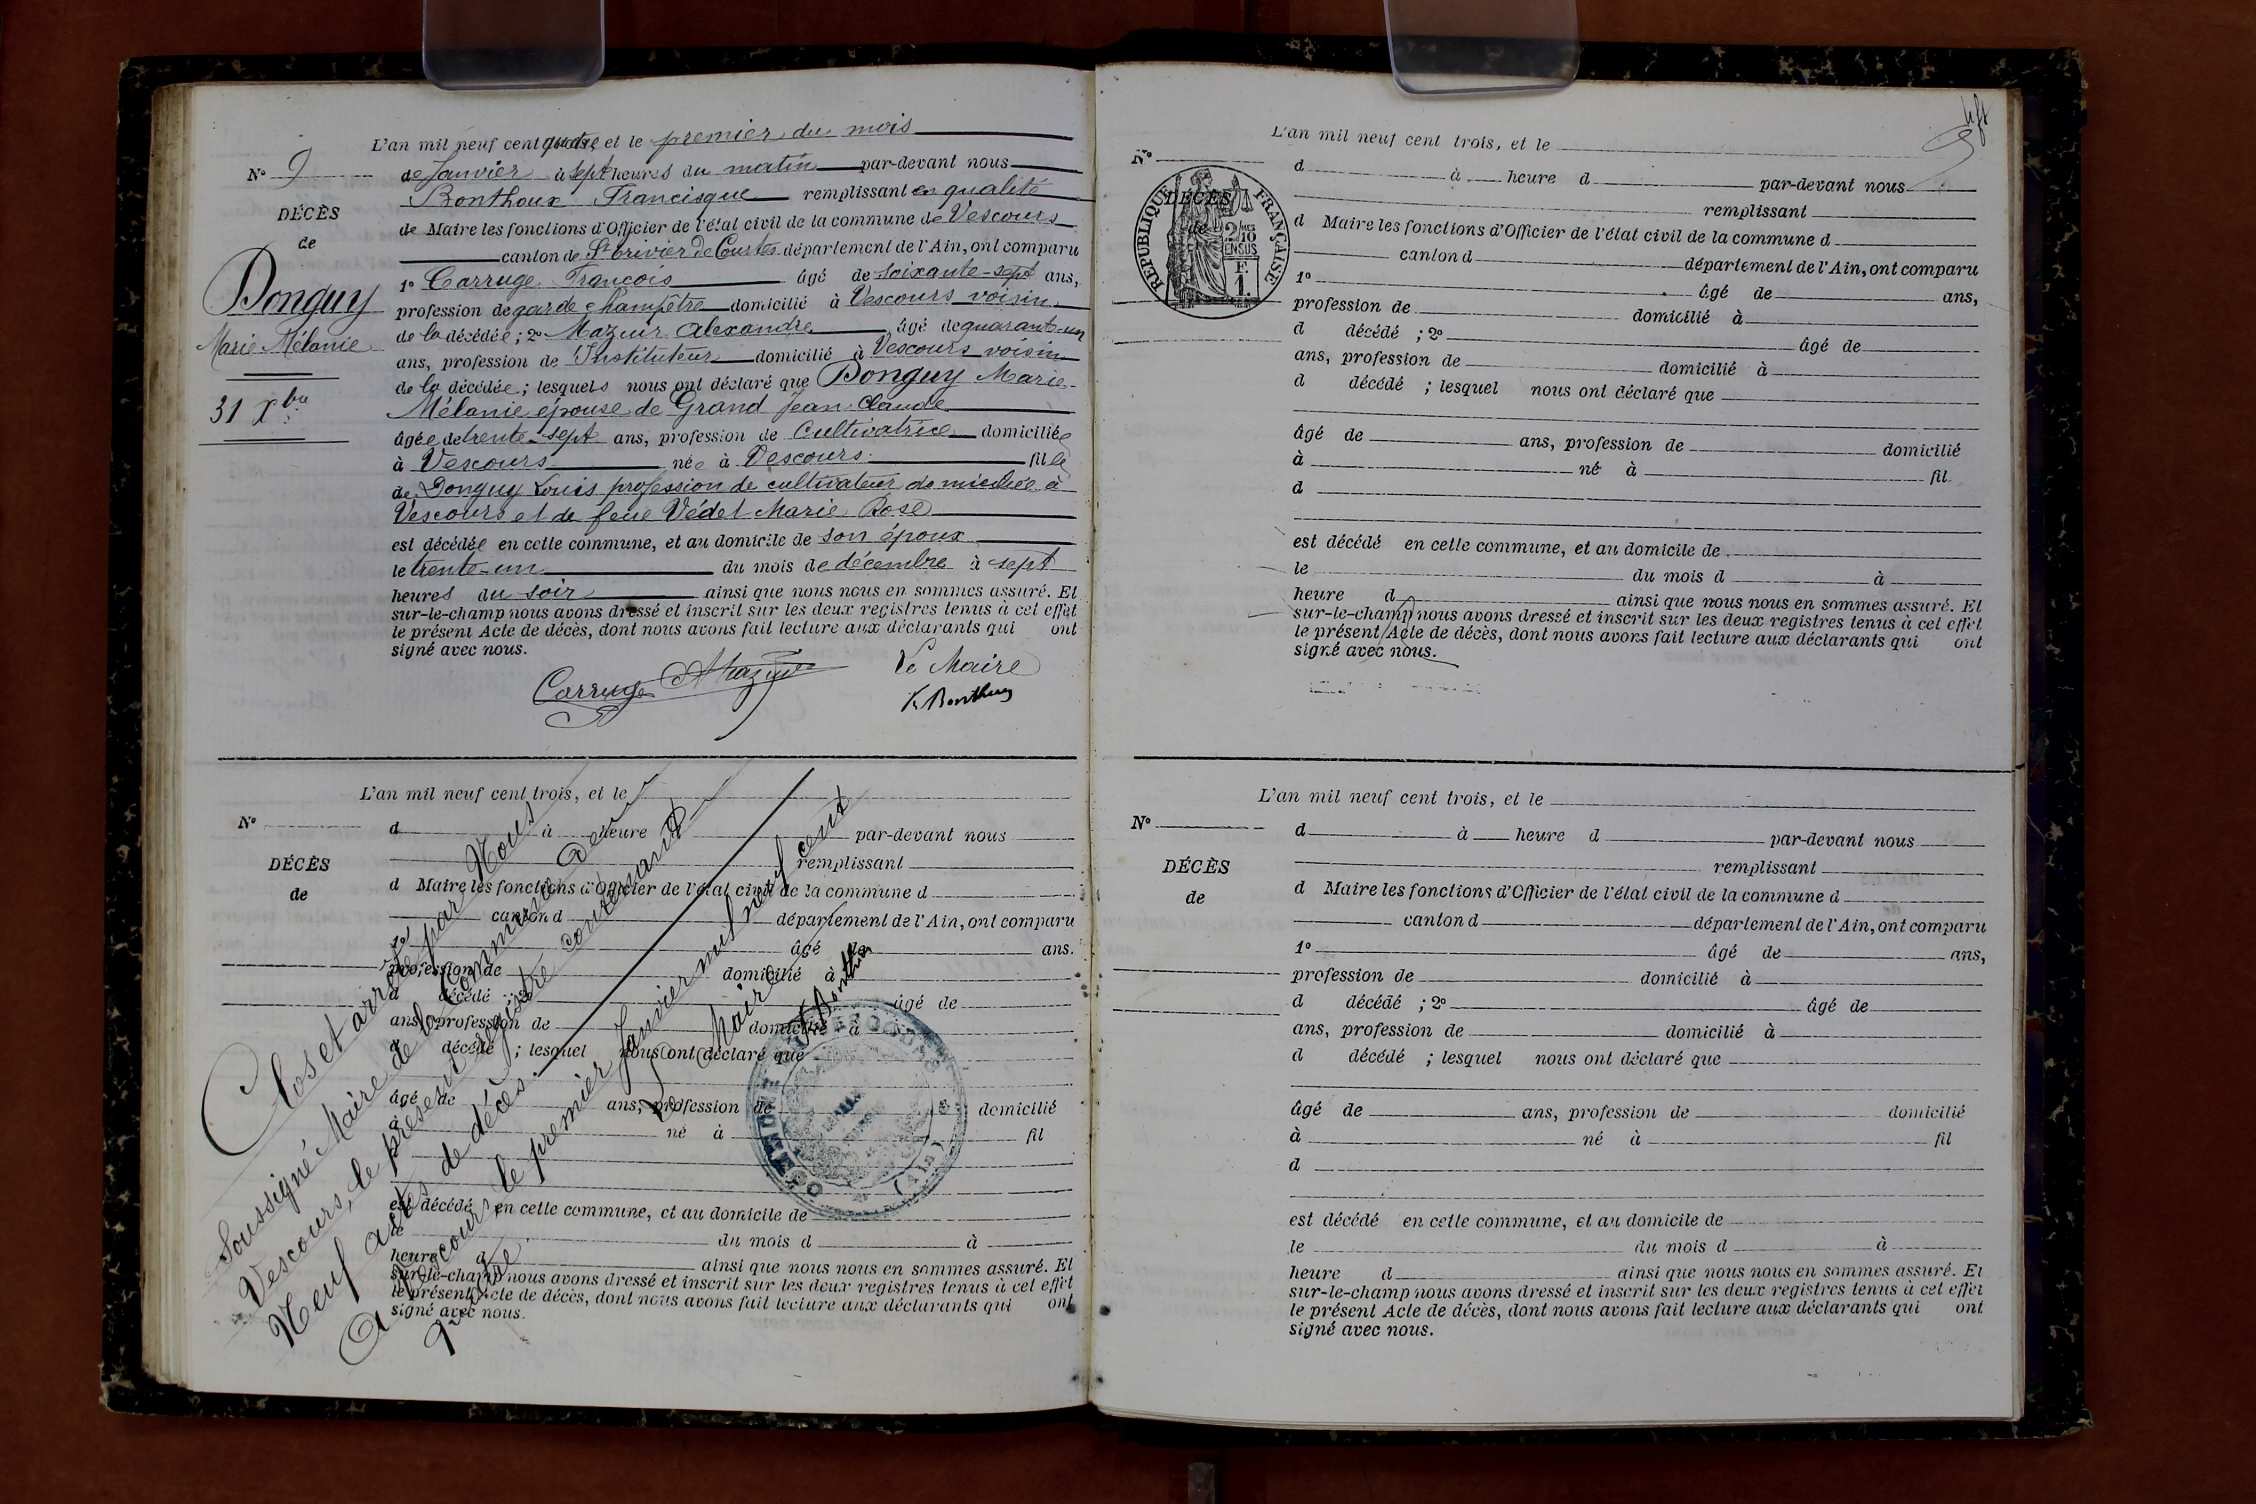 L'an mil neuf cent quatre, et le premier du mois
N° 9
de Janvier à sept heures du matin par-devant nous
Bonthoux Francisque remplissant en qualité
DÉCÈS
de Maire les fonctions d'Officier de l'état civil de la commune de Vescours
de
canton de St Trivier de Courtes département de l'Ain, ont comparu
Donguy
Marie Mélanie
31 Xbre
1° Carruge François âgé de soixante-sept ans,
profession de garde champêtre domicilié à Vescours voisin
de la décédée ; 2° Mazuir Alexandre âgé de quarante-un
ans, profession de Instituteur domicilié à Vescours voisin
de la décédée ; lesquels nous ont déclaré que Donguy Marie
Mélanie épouse de Grand Jean-Claude
âgée de trente-sept ans, profession de Cultivatrice domiciliée
à Vescours née à Vescours fille
de Donguy Louis profession de cultivateur domicilié à
Vescours et de feue Védet Marie Rose
est décédée en cette commune, et au domicile de son époux
le trente-un du mois de décembre à sept
heures du soir ainsi que nous nous en sommes assuré. Et
sur-le-champ nous avons dressé et inscrit sur les deux registres tenus à cet effet
le présent Acte de décès, dont nous avons fait lecture aux déclarants qui ont
signé avec nous.
Carruge AMazuir Le Maire
F. Bonthoux
L'an mil neuf cent trois, et le
N°
d à heure d par-devant nous
remplissant
DÉCÈS
d Maire les fonctions d'Officier de l'état civil de la commune d
de
canton d département de l'Ain, ont comparu
1° âgé de ans.
profession de domicilié à
d décédé ; 2° âgé de
ans, profession de domicilié à
d décédé ; lesquel nous ont déclaré que
âgé de ans, profession de domicilié
à né à fil
d
est décédé en cette commune, et au domicile de
le du mois d à
heure d ainsi que nous nous en sommes assuré. Et
sur-le-champ nous avons dressé et inscrit sur les deux registres tenus à cet effet
le présent Acte de décès, dont nous avons fait lecture aux déclarants qui ont
signé avec nous.
Clos et arrêté par Nous
Soussigné Maire de la Commune de
Vescours, le présent registre contenant
Neuf actes de décès.
A Vescours, le premier Janvier mil neuf cent
quatre.
Le Maire
F. Bonthoux
COMMUNE DE VESCOURS
(Ain)
L'an mil neuf cent trois, et le
N°
d à heure d par-devant nous
remplissant
DÉCÈS
de
RÉPUBLIQUE FRANÇAISE
2/10
EN SUS
F.
1.
d Maire les fonctions d'Officier de l'état civil de la commune d
canton d département de l'Ain, ont comparu
1° âgé de ans,
profession de domicilié à
d décédé ; 2° âgé de
ans, profession de domicilié à
d décédé ; lesquel nous ont déclaré que
âgé de ans, profession de domicilié
à né à fil
d
est décédé en cette commune, et au domicile de
le du mois d à
heure d ainsi que nous nous en sommes assuré. Et
sur-le-champ nous avons dressé et inscrit sur les deux registres tenus à cet effet
le présent Acte de décès, dont nous avons fait lecture aux déclarants qui ont
signé avec nous.
L'an mil neuf cent trois, et le
N°
d à heure d par-devant nous
DÉCÈS
remplissant
de
d Maire les fonctions d'Officier de l'état civil de la commune d
canton d département de l'Ain, ont comparu
1° âgé de ans,
profession de domicilié à
d décédé ; 2° âgé de
ans, profession de domicilié à
d décédé ; lesquel nous ont déclaré que
âgé de ans, profession de domicilié
à né à fil
d
est décédé en cette commune, et au domicile de
le du mois d à
heure d ainsi que nous nous en sommes assuré. Et
sur-le-champ nous avons dressé et inscrit sur les deux registres tenus à cet effet
le présent Acte de décès, dont nous avons fait lecture aux déclarants qui ont
signé avec nous.